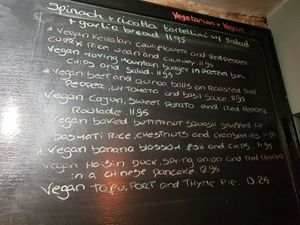 Vegetarian + Vegan
Spinach + ricotta tortellini w/ salad
+ garlic bread 11.95
* Vegan Keralan cauliflower and red pepper
curry, rice, naan and chutney. 11.95
Vegan Moving Mountain burger in pretzel bun,
chips and salad. 11.95
* Vegan beet and quinoa balls on roasted red
pepper, w/ tomato and basil sauce 11.95
Vegan Cajun, sweet potato and red pepper
roulade. 11.95
Vegan baked butternut squash stuffed w/
basmati rice, chestnuts and cranberries 11.95
* Vegan banana blossom fish and chips. 11.95
Vegan hoisin duck, spring onion and red peppers
in a chinese pancake. 12.95
Vegan tofu, port and thyme pie. 13.25